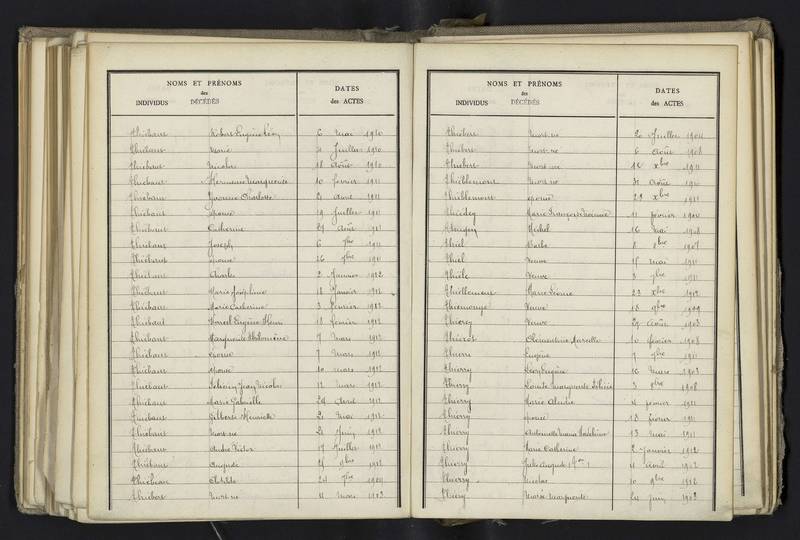 NOMS ET PRÉNOMS
des
INDIVIDUS DÉCÉDÉS
DATES
des ACTES
Thiébaut Robert Eugène Léon 6 Mai 1910
Thiébaut Marie 4 Juillet 1910
Thiébaut Nicolas 18 Août 1910
Thiébaut Hermance Marguerite 10 février 1911
Thiébaut Yvonne Charlotte 21 avril 1911
Thiébaut épouse 19 Juillet 1911
Thiébaut Catherine 29 Août 1911
Thiébaut Joseph 6 1911
Thiébaut épouse 26 1911
Thiébaut Charles 2 Janvier 1912
Thiébaut Marie Joséphine 18 Janvier 1912
Thiébaut Marie Catherine 3 Février 1912
Thiébaut Marcel Eugène Henri 18 février 1912
Thiébaut Marguerite 7 Mars 1912
Thiébaut épouse 7 Mars 1912
Thiébaut épouse 10 mars 1912
Thiébaut Jean Nicolas 12 Mars 1912
Thiébaut Marie Gabrielle 24 Avril 1912
Thiébaut Gilberte Henriette 21 Mai 1912
Thiébaut Mort-né 21 Juin 1912
Thiébaut André Victor 17 Juillet 1912
Thiébaut Auguste 1912
Thiébeau Clotilde 24 1904
Thiébert Mort-né 11 Mars 1903
NOMS ET PRÉNOMS
des
INDIVIDUS DÉCÉDÉS
DATES
des ACTES
Thiébert Mort-né 20 Juillet 1904
Thiébert Mort-né 6 Août 1908
Thiébert Mort-né 12 Xbre 1911
Thiéblemont Mort-né 31 Août 1910
Thiéblemont épouse 29 Xbre 1911
Marie Françoise 11 février 1904
Michel 16 Mai 1908
Thiel Barbe 8 8bre 1907
Thiel Veuve 15 Mai 1911
Thièle Veuve 3 1911
Thiellement Marie Léonie 23 Xbre 1912
Veuve 18 9bre 1909
Veuve 29 Août 1903
Thiérot Clémentine Marcelle 10 février 1908
Thierri Eugène 7 1911
Thierry Léon Eugène 16 Mars 1903
Thierry Marguerite 3 1908
Thierry Marie 4 février 1911
Thierry épouse 18 février 1911
Thierry Antoinette 13 Mai 1911
Thierry Marie Catherine 2 Janvier 1912
Thierry Jules Auguste 4 Août 1912
Thierry Nicolas 10 9bre 1912
Thiéry Marie Marguerite 24 Juin 1903